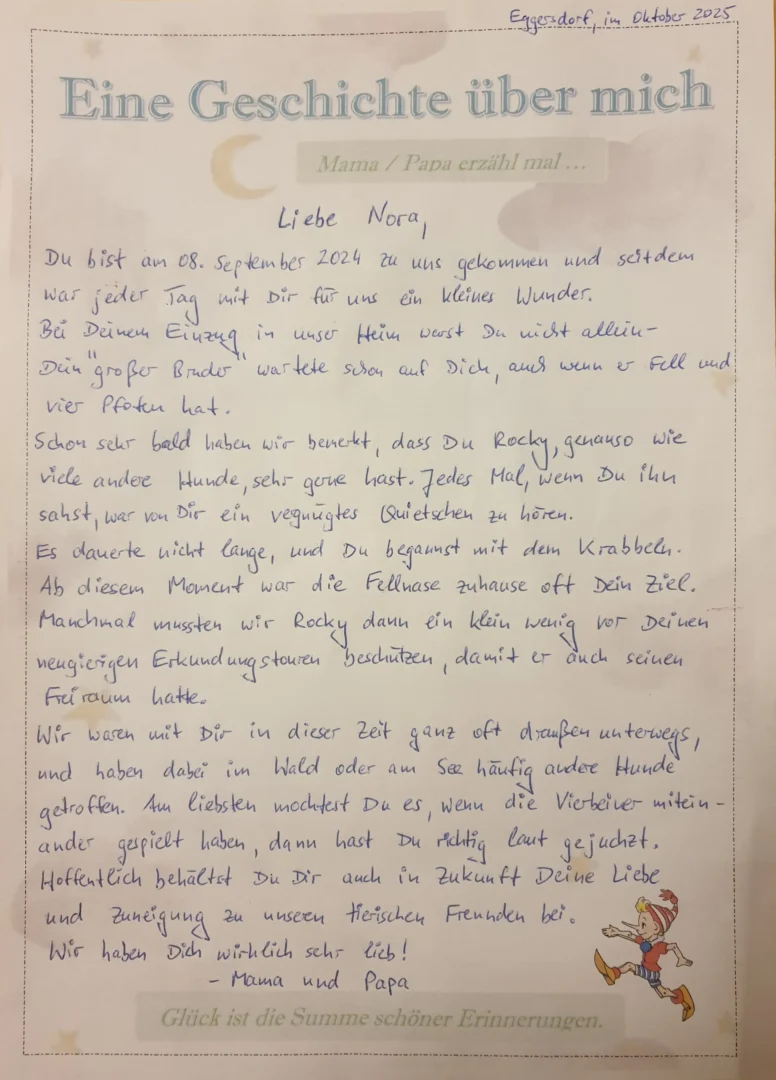 Eggersdorf, im Oktober 2025
Eine Geschichte über mich
Mama / Papa erzähl mal ...
Liebe Nora,
Du bist am 08. September 2024 zu uns gekommen und seitdem
war jeder Tag mit Dir für uns ein kleines Wunder.
Bei Deinem Einzug in unser Heim warst Du nicht allein-
Dein "großer Bruder" wartete schon auf Dich, auch wenn er Fell und
vier Pfoten hat.
Schon sehr bald haben wir bemerkt, dass Du Rocky, genauso wie
viele andere Hunde, sehr gerne hast. Jedes Mal, wenn Du ihn
sahst, war von Dir ein vergnügtes Quietschen zu hören.
Es dauerte nicht lange, und Du begannst mit dem Krabbeln.
Ab diesem Moment war die Fellnase zuhause oft Dein Ziel.
Manchmal mussten wir Rocky dann ein klein wenig vor Deinen
neugierigen Erkundungstouren beschützen, damit er auch seinen
Freiraum hatte.
Wir waren mit Dir in dieser Zeit ganz oft draußen unterwegs,
und haben dabei im Wald oder am See häufig andere Hunde
getroffen. Am liebsten mochtest Du es, wenn die Vierbeiner mitein-
ander gespielt haben, dann hast Du richtig laut gejuchzt.
Hoffentlich behältst Du Dir auch in Zukunft Deine Liebe
und Zuneigung zu unseren tierischen Freunden bei.
Wir haben Dich wirklich sehr lieb!
- Mama und Papa
Glück ist die Summe schöner Erinnerungen.